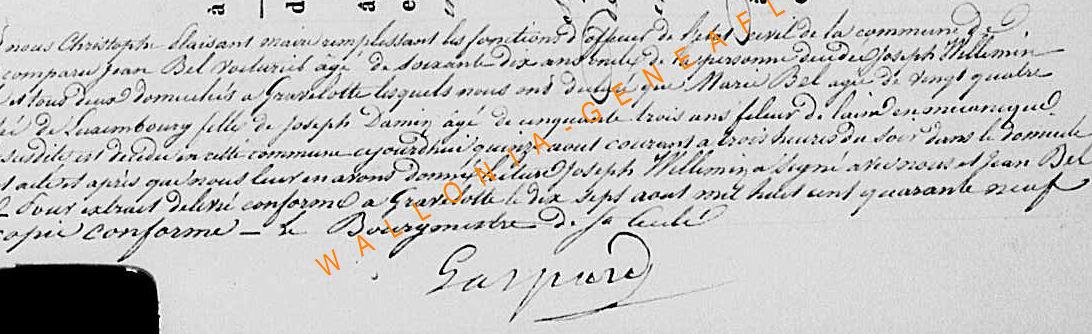 nous Christophe Plaisant maire remplissant les fonctions d'officier de l'etat civil de la commune de
comparu Jean Bel voiturier agé de soixante dix ans oncle de la personne decedé Joseph Willemin
et tous deux domiciliés a Gravelotte lesquels nous ont declaré que Marie Bel agé de vingt quatre
de Luxembourg fille de Joseph Damin agé de cinquante trois ans fileur de laine en mecanique
susdite est decedée en cette commune cejourdhui quinze aout courant a trois heures du soir dans le domicile
acte et après que nous leur en avons donné lecture Joseph Willemin a signé avec nous et Jean Bel
Pour extrait delivré conforme a Gravelotte le dix sept aout mil huit cent quarante neuf
copie conforme - Le Bourgmestre de Ste Cecile
Gaspard
WALLONIA-GENEAL